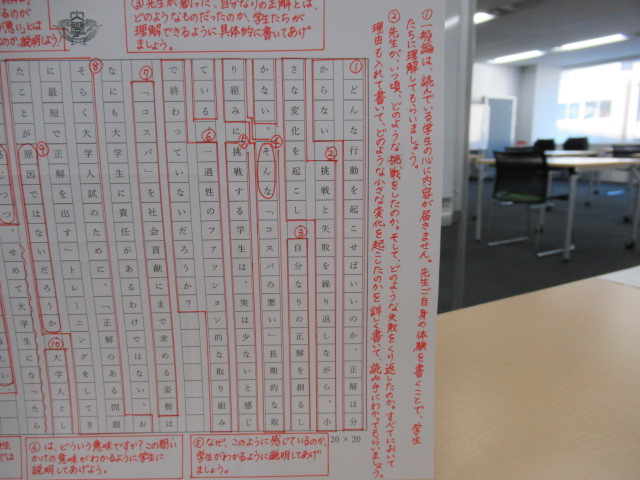 ① 一般論は、読んでいる学生の心に内容が届きません。先生ご自身の体験を書くことで、学生
たちに理解してもらいましょう。
② 先生が、いつ頃、どのような挑戦をしたのか。そして、どのような失敗をくり返したのか。すべてにおいて
理由も入れて書いて、どのような小さな変化を起こしたのかを詳しく書いて、読み手にわかってもらいましょう。
③ 先生が創った、自分なりの正解とは、
どのようなものだったのか、学生たちが
理解できるように具体的に書いてあげ
ましょう。
① どんな行動を起こせばいいのか、正解は分
からない。② 挑戦と失敗を繰り返しながら、小
さな変化を起こし③ 自分なりの正解を創るし
かない。④ そんな「コスパの悪い」長期的な取
り組みに⑤ 挑戦する学生は、実は少ないと感じ
ている
⑥ 一過性のファッション的な取り組み
で終わっていないだろうか?
⑦ 「コスパ」を社会貢献にまで求める姿勢は
なにも大学生に責任があるわけではない。お
⑧ そらく大学入試のために、「正解のある問題
に最短で正解を出す」トレーニングをしてき
たことが⑨ 原因ではないだろうか
⑩ 大学人とし
せめて大学生になったら
20×20
⑤ なぜ、このように感じているのか、
学生がわかるように説明してあげ
ましょう。
⑥ は、どういう意味ですか?この問い
かけの意味がわかるように学生に
説明してあげよう。